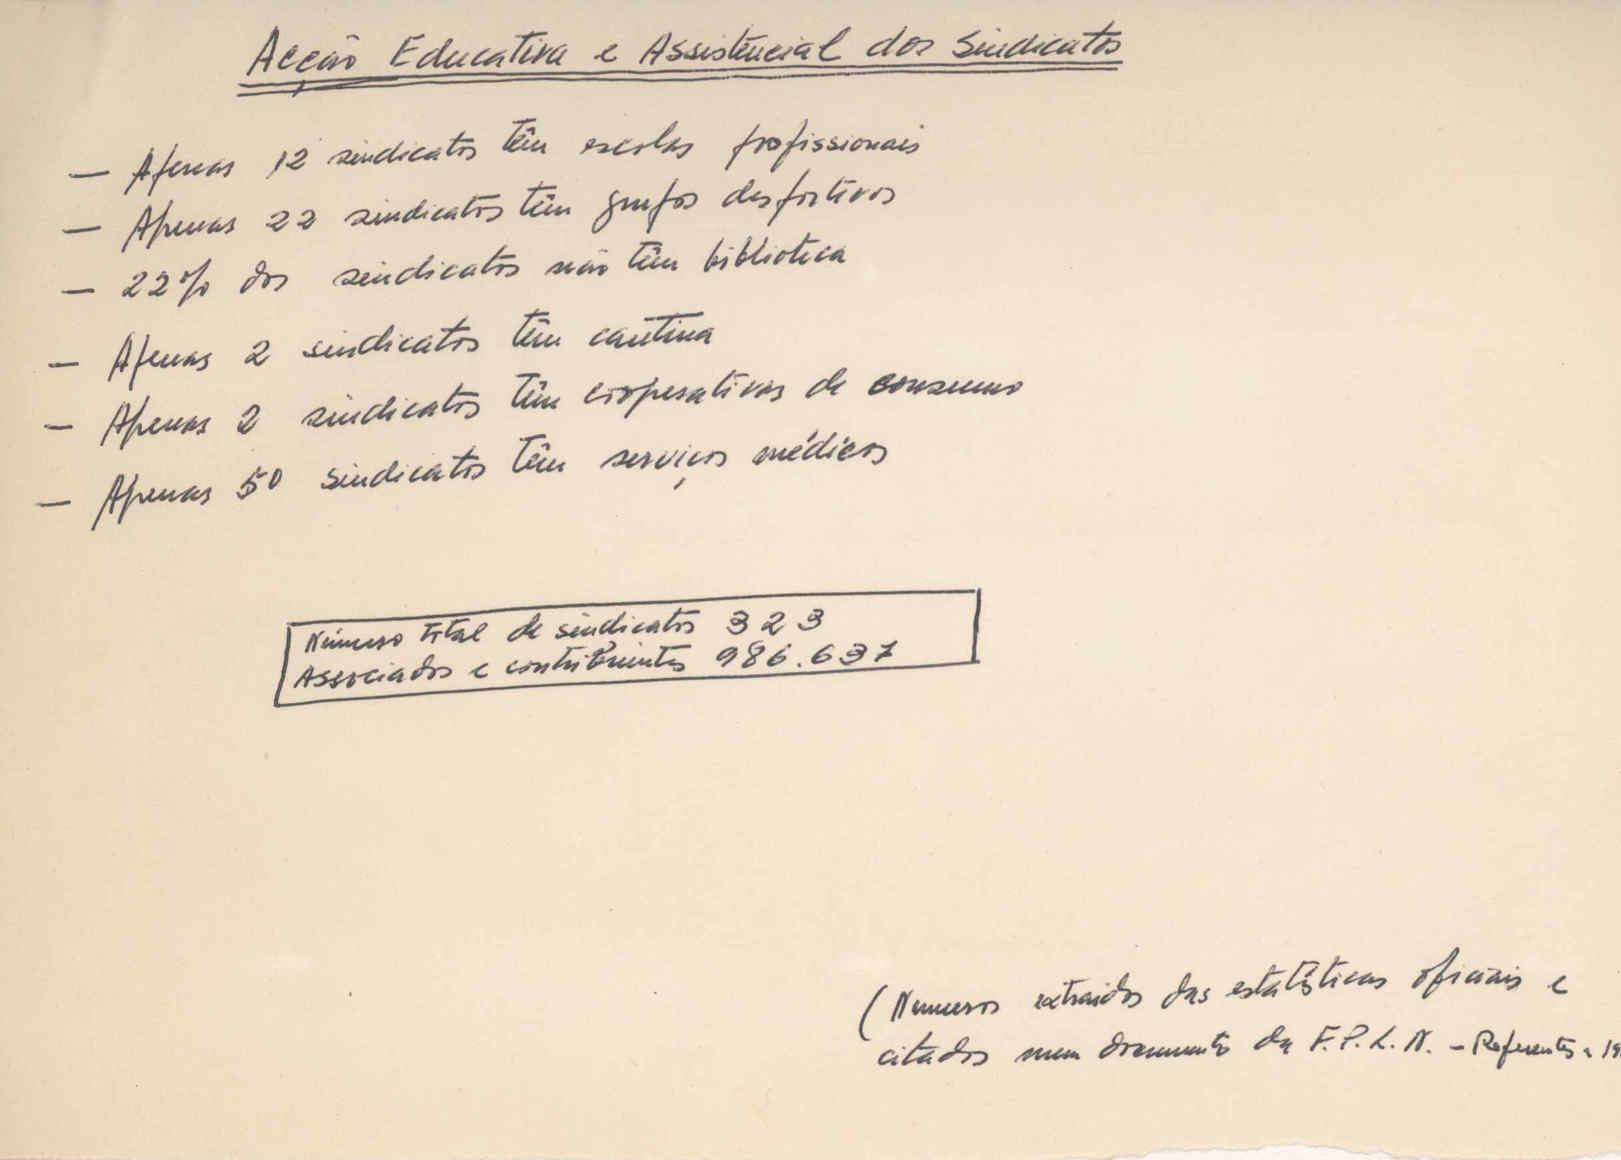 Acção Educativa e Assistêncial dos Sindicatos
— Apenas 12 sindicatos têm escolas profissionais
— Apenas 22 sindicatos têm grupos desportivos
— 22% dos sindicatos não têm biblioteca
— Apenas 2 sindicatos têm cantina
— Apenas 2 sindicatos têm cooperativas de consumo
— Apenas 50 sindicatos têm serviços médicos
Número total de sindicatos 323
Associados e contribuintes 986.637
(Numeros extraidos das estatísticas oficiais e
citados num documento da F.P.L.N. – Referentes a 19